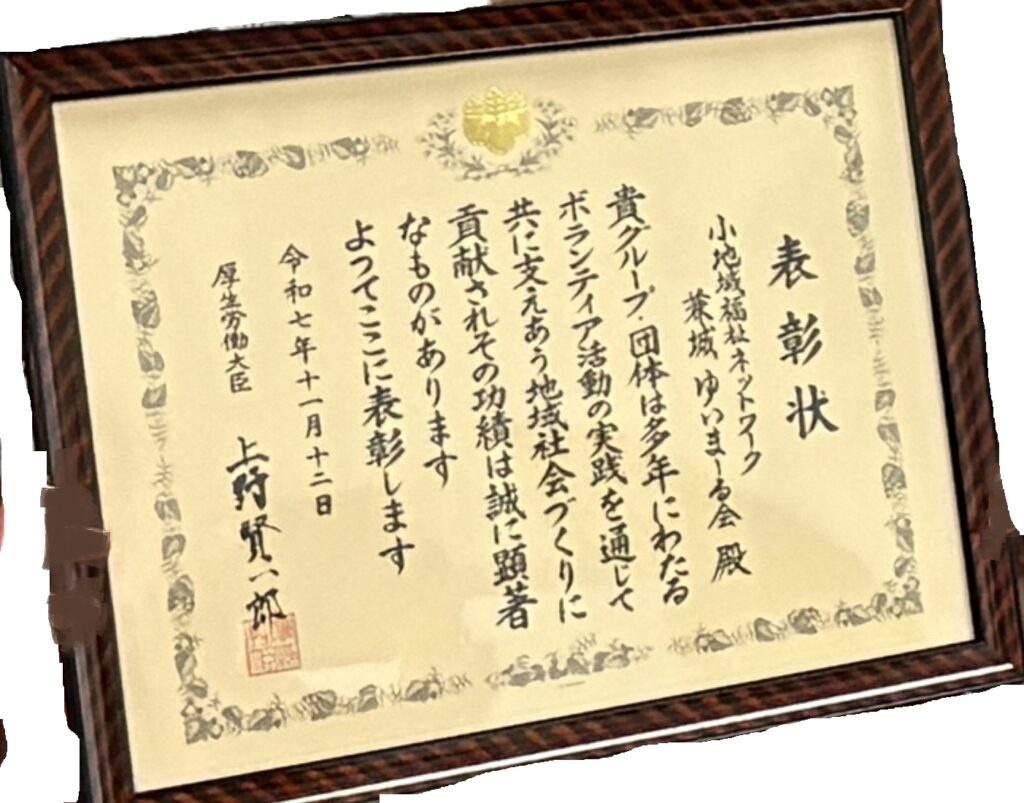 表彰状
小地域福祉ネットワーク
兼城 ゆいまーる会 殿
貴グループ・団体は多年にわたる
ボランティア活動の実践を通じて
共に支えあう地域社会づくりに
貢献されその功績は誠に顕著
なものがあります
よつてここに表彰します
令和七年十一月十二日
厚生労働大臣 上野賢一郎